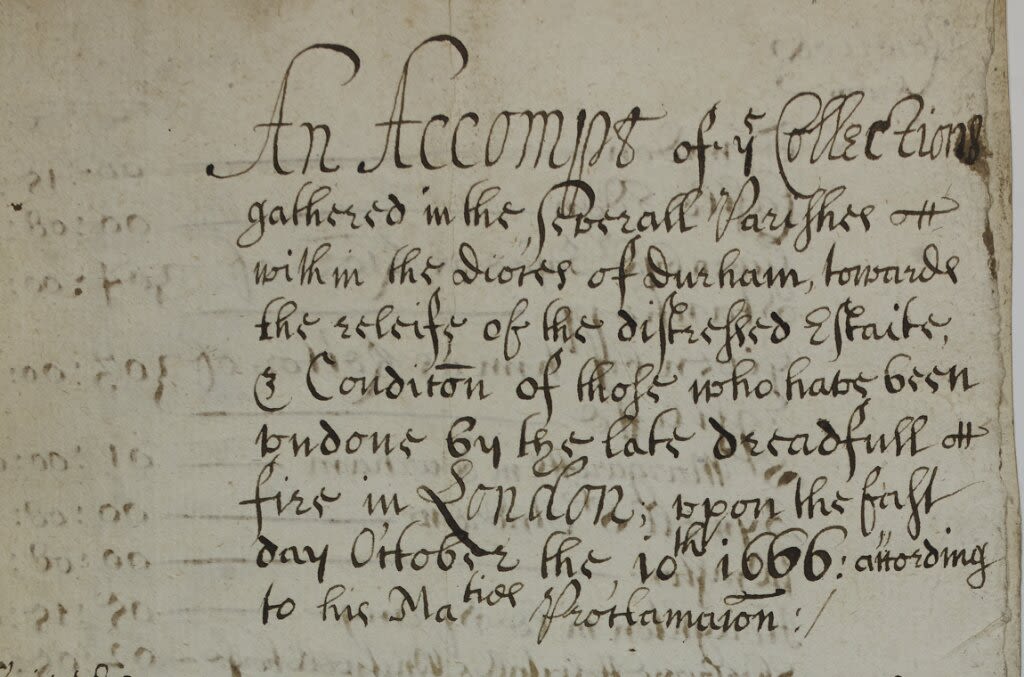 An Accompt of yᵉ Collections
gathered in the severall Parishes
within the dioces of Durham, towards
the releife of the distressed Estaite,
& Conditōn of those who have been
vndone by the late dreadfull
fire in London; vpon the fast
day October the 10th 1666: according
to his Maties Proclamaiōn:/